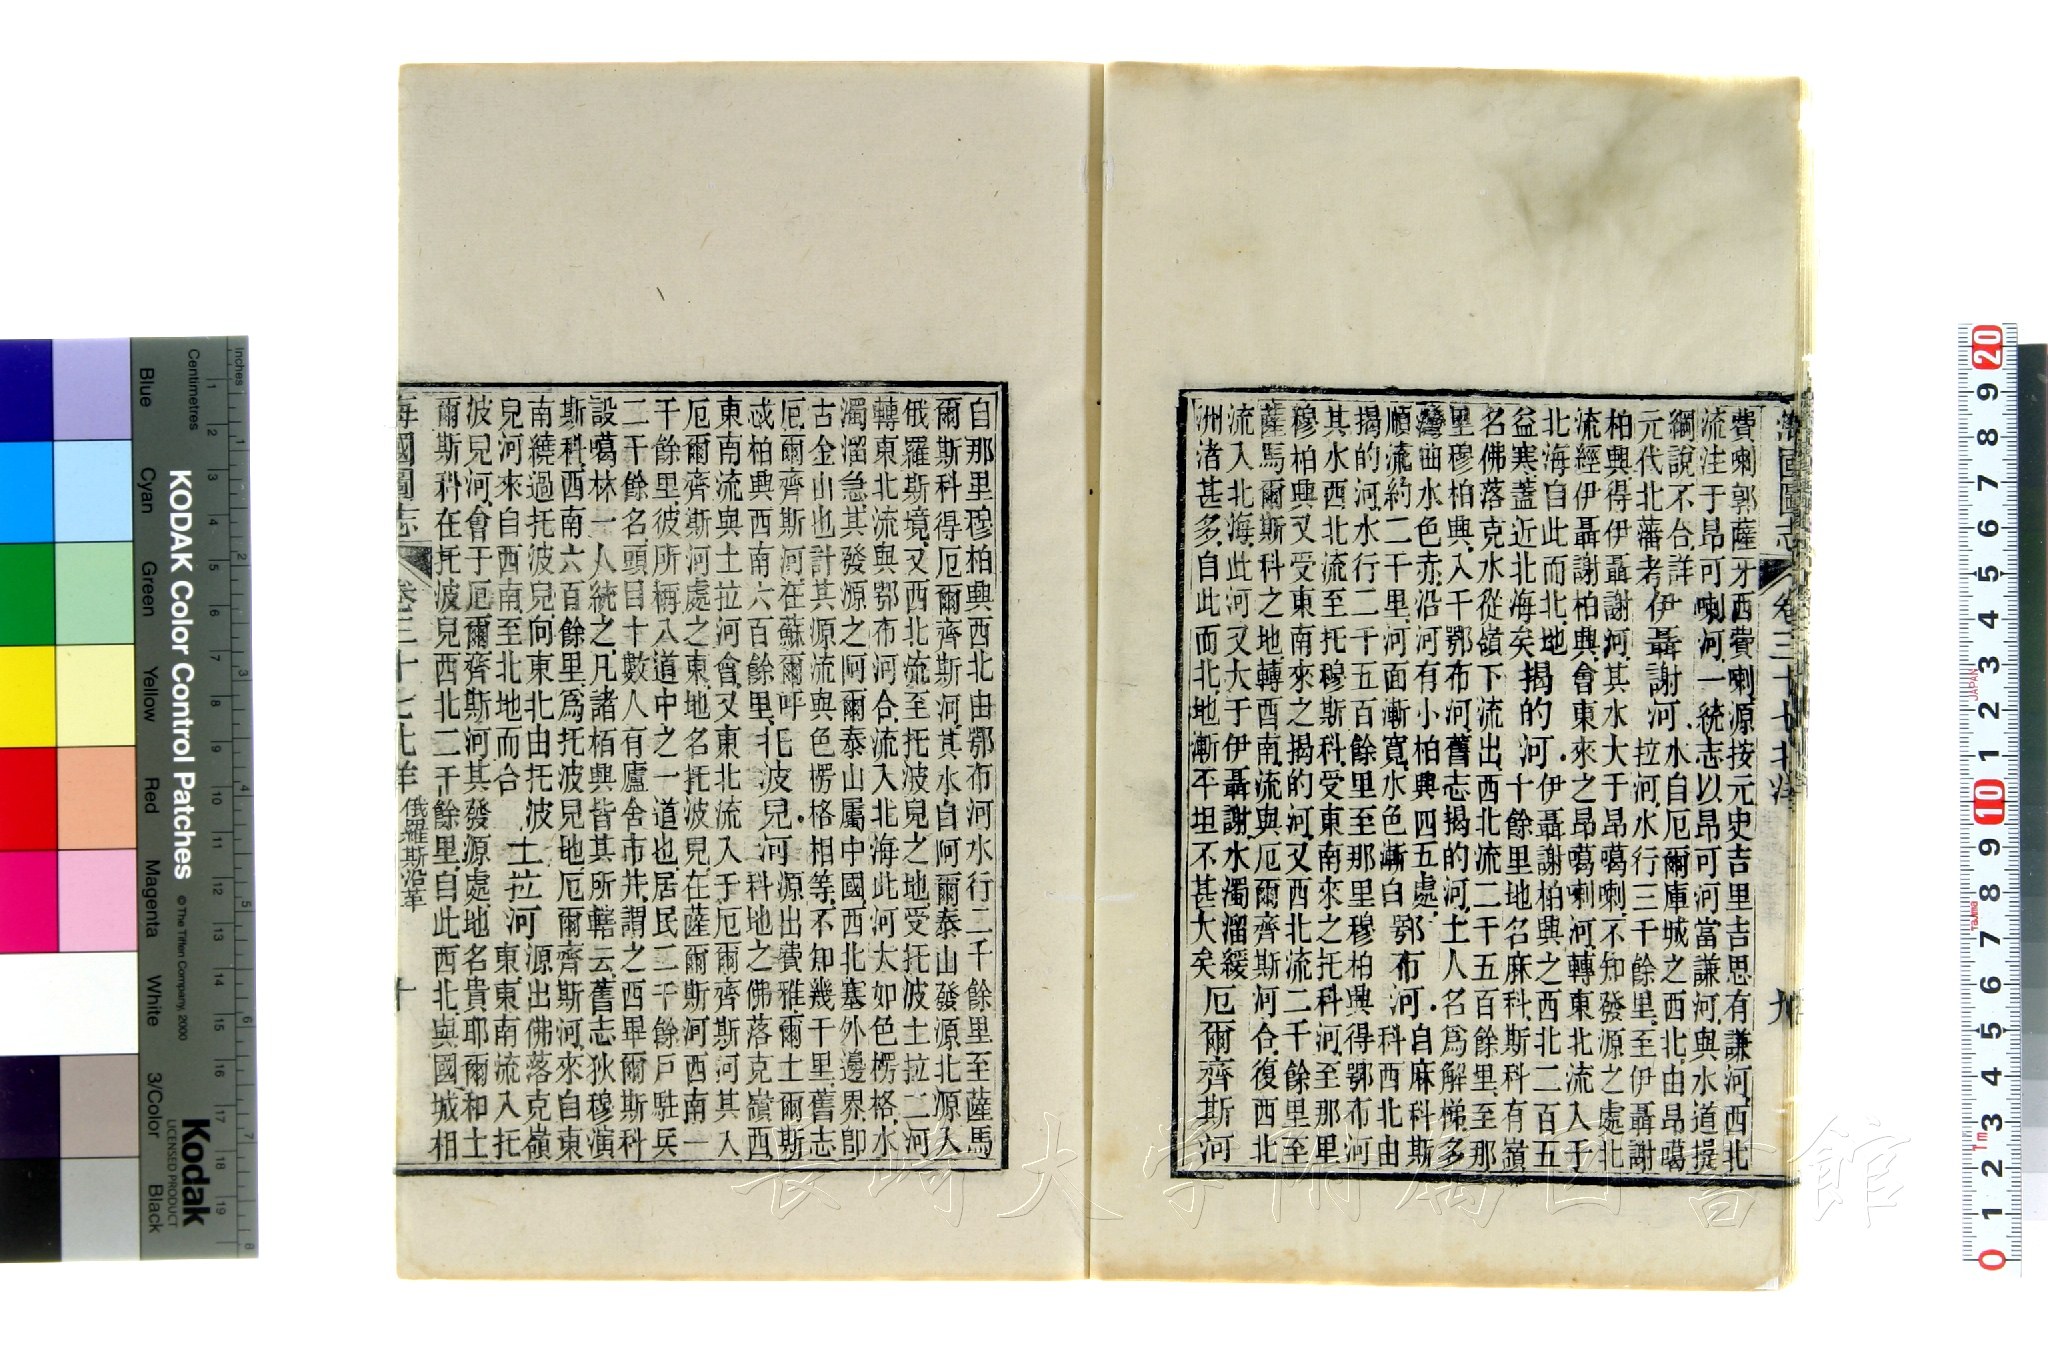 海國圖志 卷三十七北洋 九
費喇郭薩牙西費喇源按元史吉里吉思有謙河西北
流注于昂可喇河一統志以昂可河當謙河與水道提
綱說不合詳
元代北藩考
伊聶謝河
水自厄爾庫城之西北由昂噶
拉河水行三千餘里至伊聶謝
柏興得伊聶謝河其水大于昂噶喇不知發源之處北
流經伊聶謝柏興會東來之昂噶喇河轉東北流入于
北海自此而北地
益寒蓋近北海矣
揭的河
伊聶謝柏興之西北二百五
十餘里地名麻科斯科有嶺
名佛落克水從嶺下流出西北流二千五百餘里至那
里穆柏興入于鄂布河舊志揭的河土人名爲解梯多
灣曲水色赤沿河有小柏興四五處
順流約二千里河面漸寬水色漸白
鄂布河
自麻科斯
科西北由
揭的河水行二千五百餘里至那里穆柏興得鄂布河
其水西北流至托穆斯科受東南來之托科河至那里
穆柏興又受東南來之揭的河又西北流二千餘里至
薩馬爾斯科之地轉西南流與厄爾齊斯河合復西北
流入北海此河又大于伊聶謝水濁溜緩
洲渚甚多自此而北地漸平坦不甚大矣
厄爾齊斯河
自那里穆柏興西北由鄂布河水行二千餘里至薩馬
爾斯科得厄爾齊斯河其水自阿爾泰山發源北流入
俄羅斯境又西北流至托波兒之地受托波土拉二河
轉東北流與鄂布河合流入北海此河大如色楞格水
濁溜急其發源之阿爾泰山屬中國西北塞外邊界卽
古金山也計其源流與色楞格相等不知幾千里舊志
厄爾齊斯河在蘇爾呼
忒柏興西南六百餘里
托波兒河
源出費雅爾土爾斯
科地之佛落克嶺西
東南流與土拉河會又東北流入于厄爾齊斯河其入
厄爾齊斯河處之東地名托波兒在薩爾斯河西南一
千餘里彼所稱八道中之一道也居民二千餘戶駐兵
二千餘名頭目十數人有廬舍市井謂之西畢爾斯科
設噶林一人統之凡諸栢興皆其所轄云舊志狄穆演
斯科西南六百餘里爲托波兒地厄爾齊斯河來自東
南繞過托波兒向東北由托波
兒河來自西南至北地而合
土拉河
源出佛落克嶺
東東南流入托
波兒河會于厄爾齊斯河其發源處地名貴耶爾和土
爾斯科在托波兒西北二千餘里自此西北與國城相
海國圖志 卷三十七北洋 俄羅斯沿革 十
長崎大学附属図書館
KODAK Color Control Patches
© The Tiffen Company, 2000
Kodak
LICENSED PRODUCT
Inches
Centimetres
Blue
Cyan
Green
Yellow
Red
Magenta
White
3/Color
Black